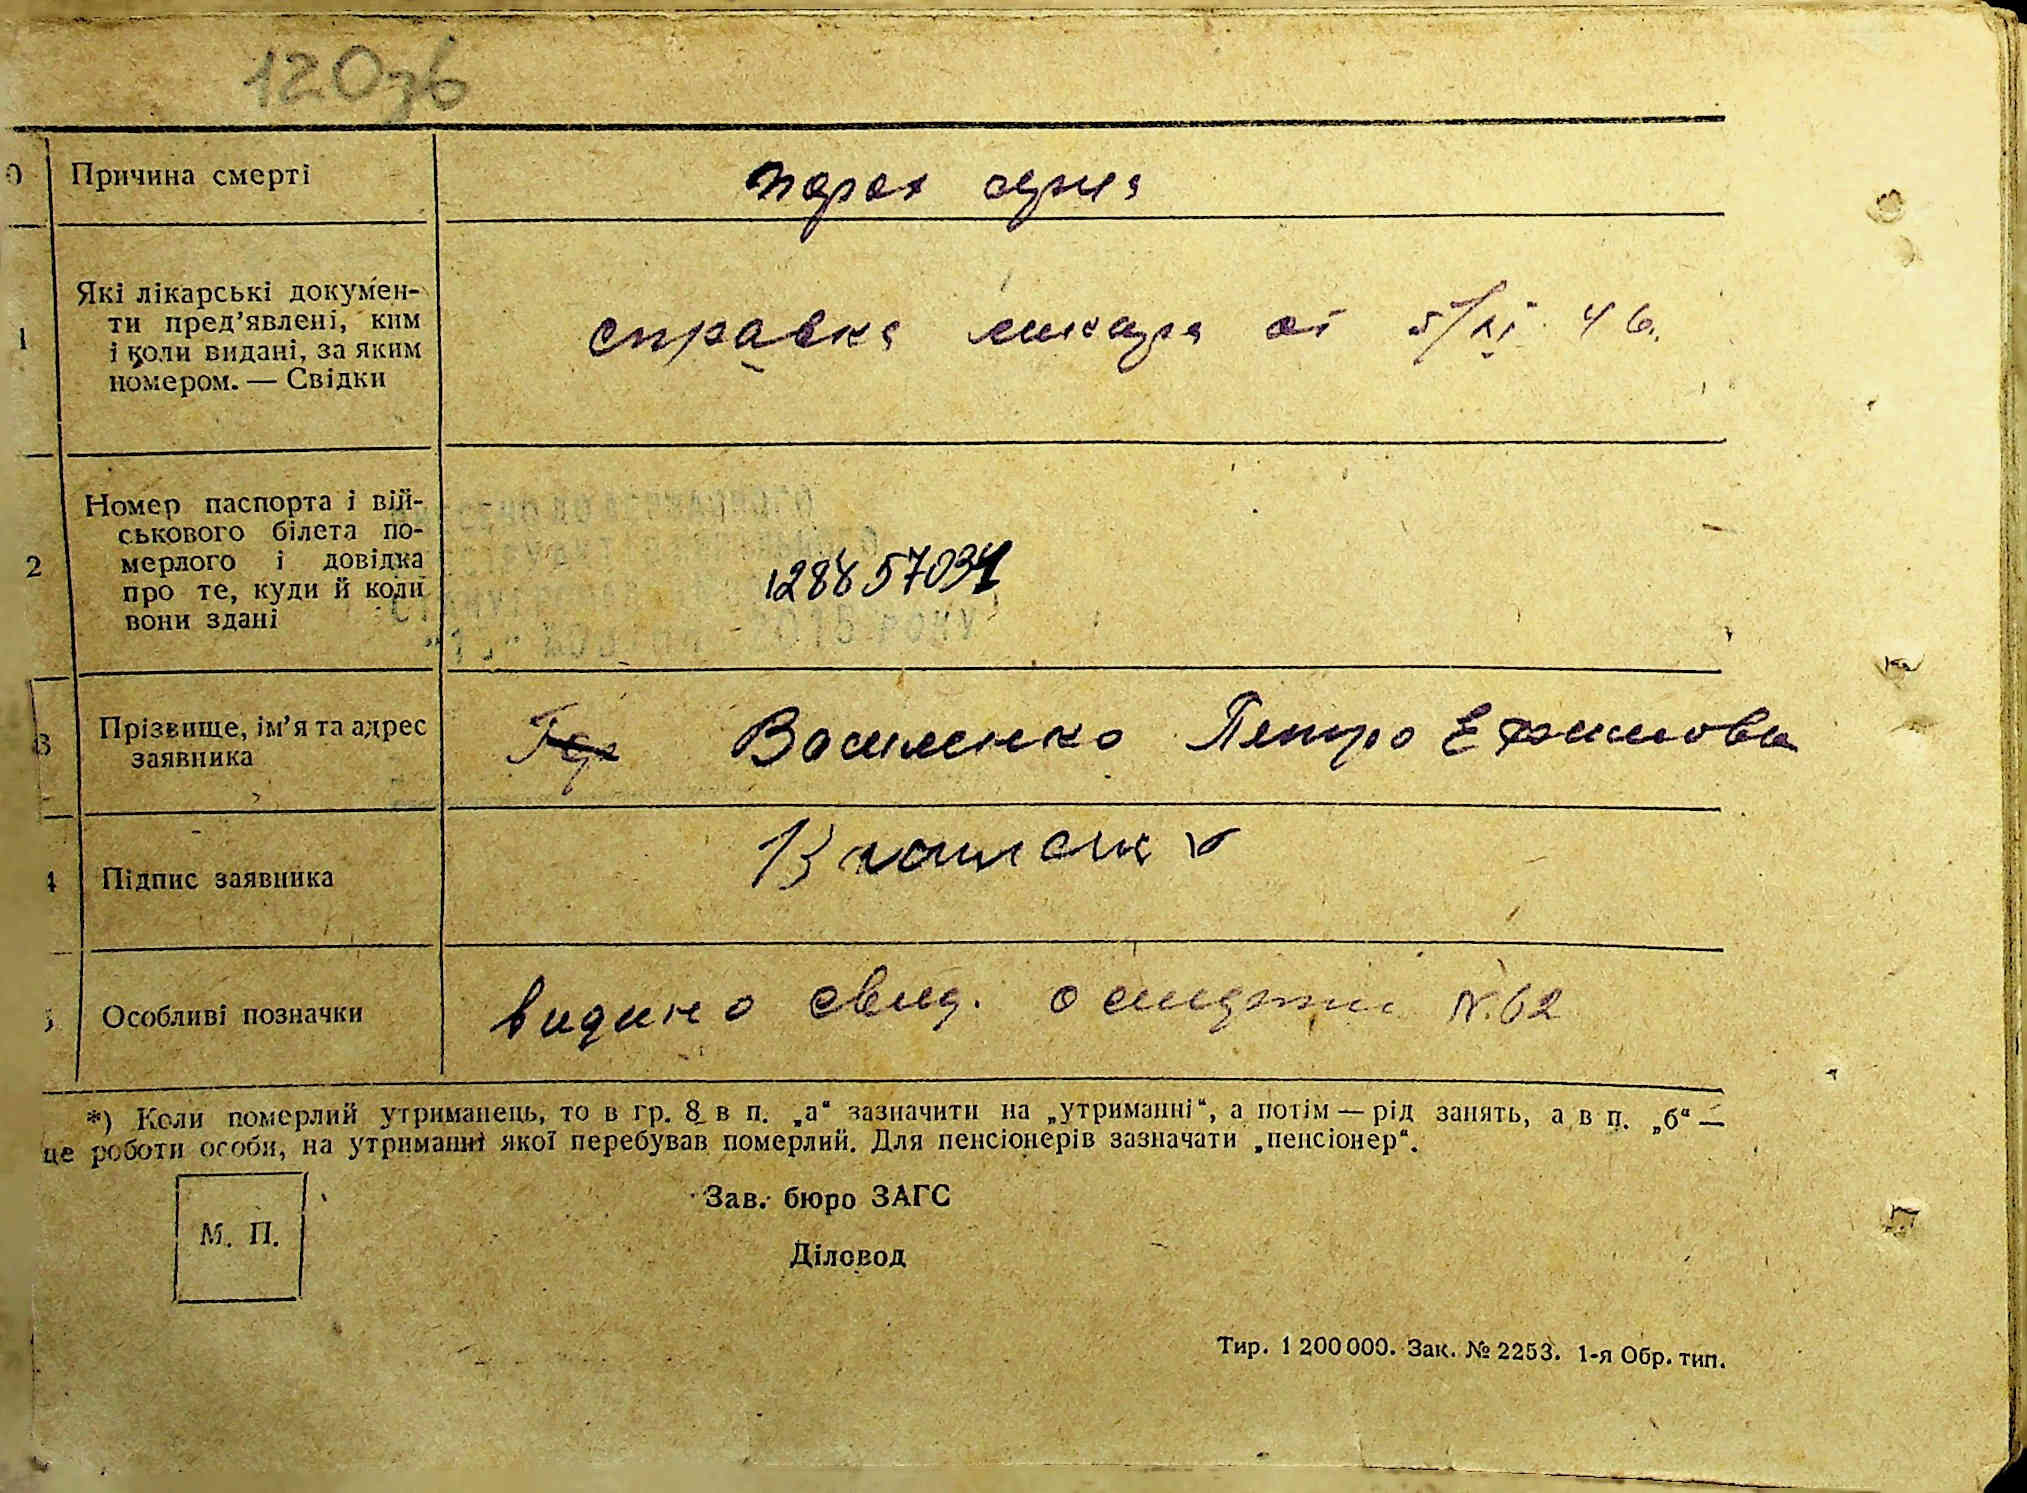 120зб
0 Причина смерті
порок серця
1 Які лікарські докумен-
ти пред’явлені, ким
і коли видані, за яким
номером. — Свідки
справка ликаря от 5/XI 46.
2 Номер паспорта і вій-
ськового білета по-
мерлого і довідка
про те, куди й коли
вони здані
12885703
2015 року
3 Прізвище, ім’я та адрес
заявника
Василенко Петро Ефимови
4 Підпис заявника
Василенк
5 Особливі позначки
видано свид. о смерти N. 62
*) Коли померлий утриманець, то в гр. 8 в п. „а“ зазначити на „утриманні“, а потім — рід занять, а в п. „б“ —
це роботи особи, на утриманні якої перебував померлий. Для пенсіонерів зазначати „пенсіонер“.
М. П.
Зав. бюро ЗАГС
Діловод
Тир. 1 200 000. Зак. № 2253. 1-я Обр. тип.